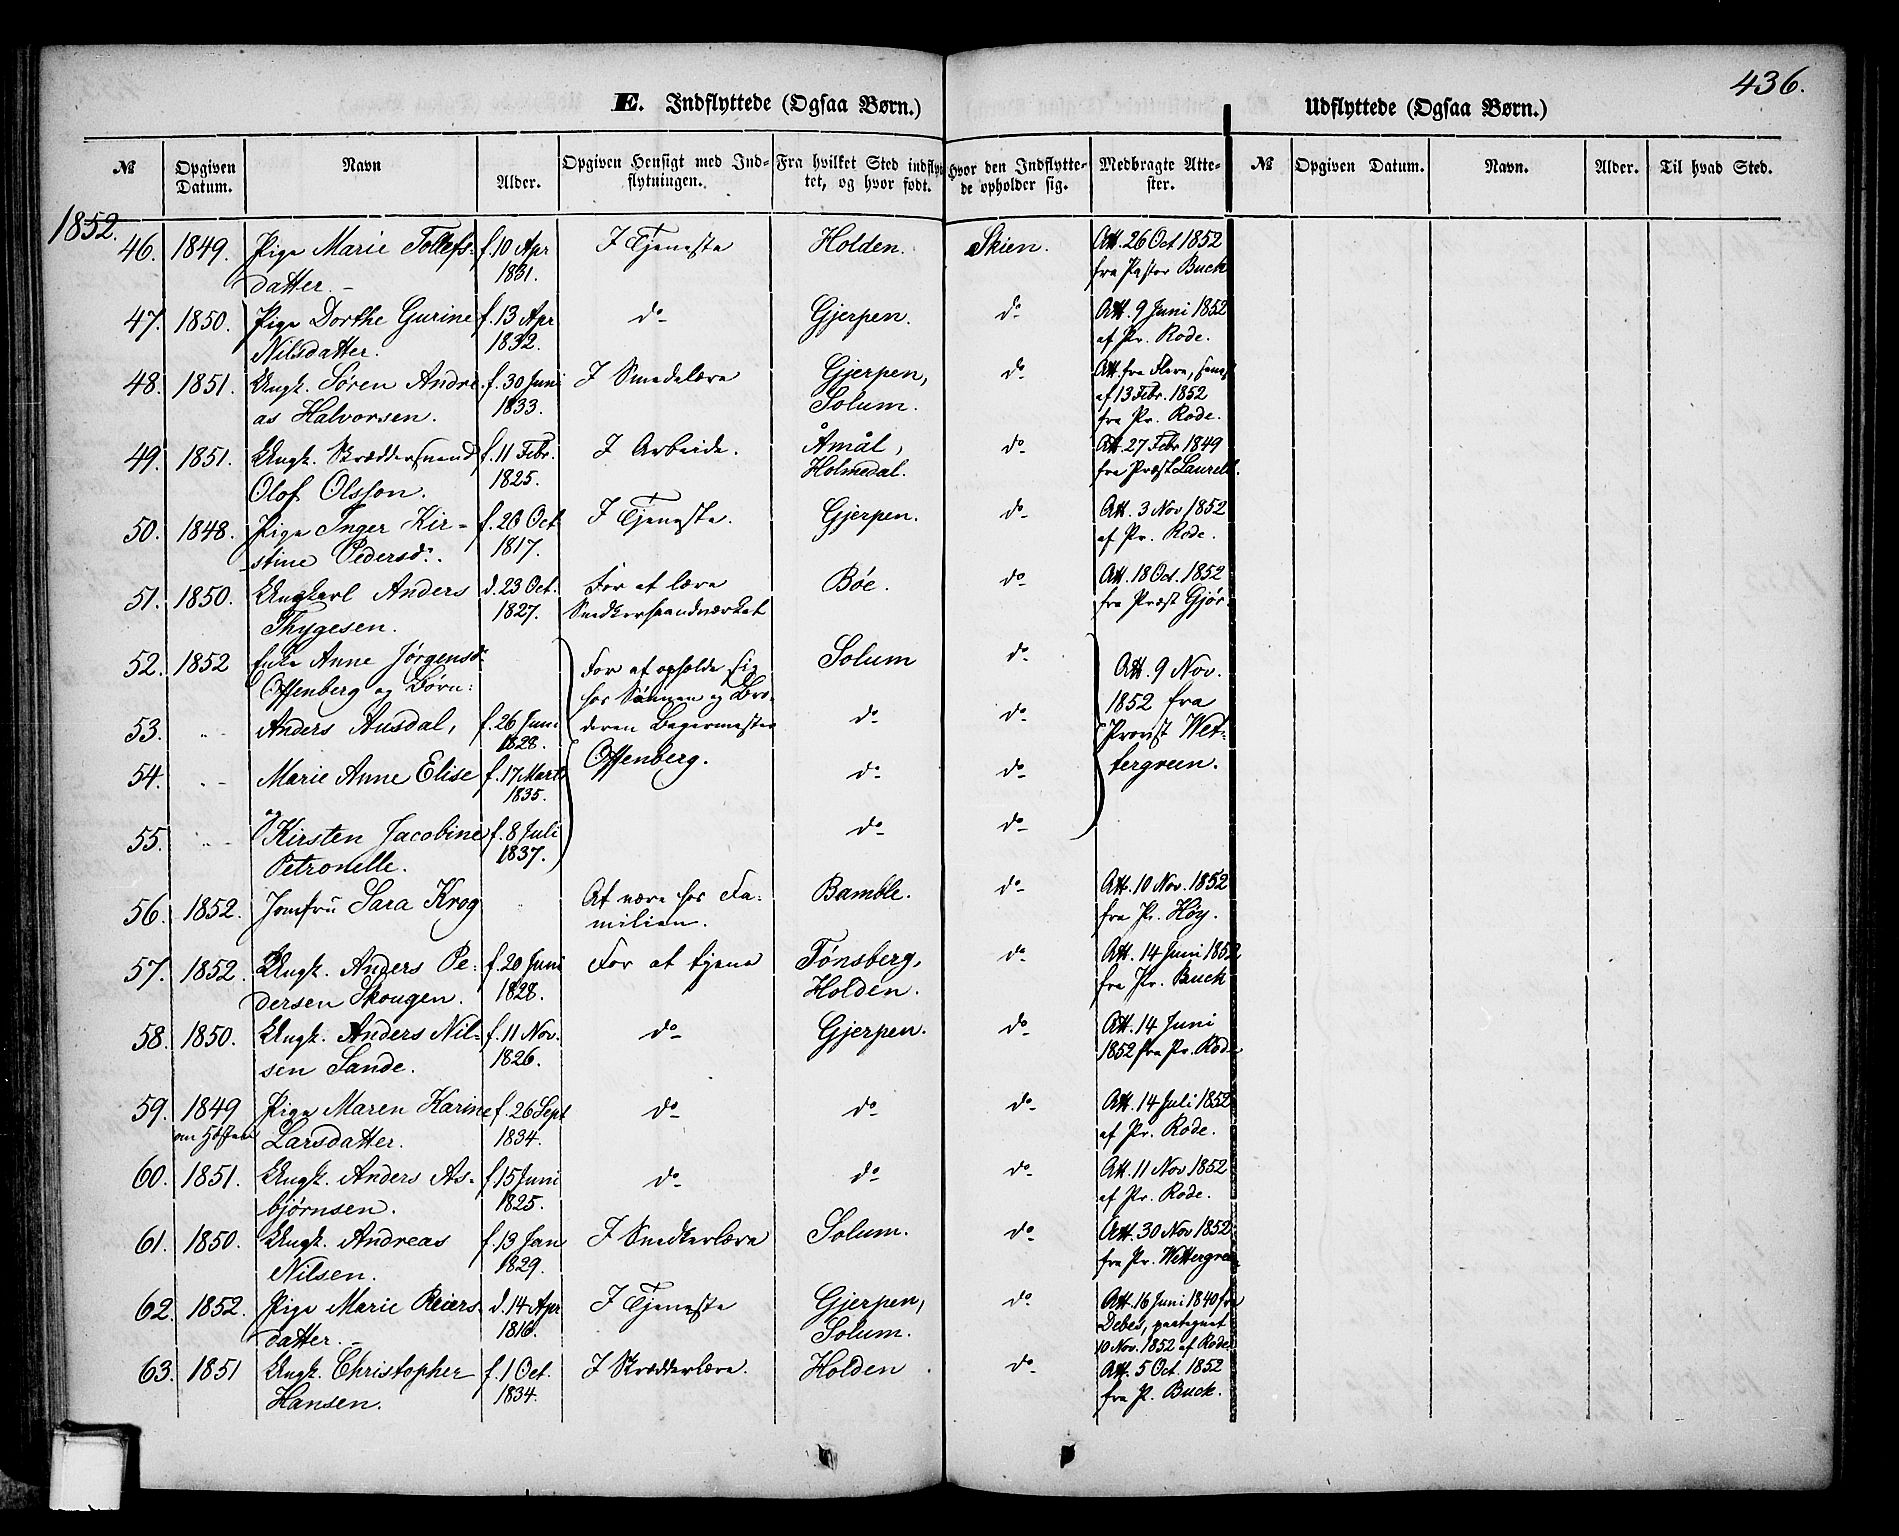 436.
E. Indflyttede (Ogsaa Børn.)
Udflyttede (Ogsaa Børn.)
№ Opgiven Datum. Navn Alder. Opgiven Hensigt med Indflytningen. Fra hvilket Sted indflyttet, og hvor født. Hvor den Indflyttede opholder sig. Medbragte Attester. № Opgiven Datum. Navn. Alder. Til hvad Sted.
1852.
46. 1849. Pige Marie Tollefs- f. 10 Apr I Tjeneste Holden. Skien. Att. 26 Oct 1852
datter. 1831. fra Pastor Buck
47. 1850. Pige Dorthe Gurine f. 13 Apr do Gjerpen. do Att. 9 Juni 1852
Nilsdatter. 1832. af Pr. Rode.
48. 1851. Ungk. Søren Andre- f. 30 Juni I Smedelære Gjerpen, do Att. fra
as Halvorsen. 1833. Solum. af 13 Febr. 1852
fra Pr. Rode.
49. 1851. Ungk. Skræddersvend f. 11 Febr. I Arbeide. Åmål, do Att. 27 Febr 1849
Olof Olsson. 1825. Holmedal. fra Præst Laurell.
50. 1848. Pige Inger Kir- f. 20 Oct I Tjeneste. Gjerpen. do Att. 3 Nov 1852
stine Pedersd. 1817. af Pr. Rode.
51. 1850. Ungkarl Anders d. 23 Oct. For at lære Bøe. do Att. 18 Oct. 1852
Thygesen. 1827. Snedkerhaandværket fra Præst Gjør.
52. 1852 Enke Anne Jørgensd. For at opholde sig Solum do Att. 9 Nov.
Offenberg og Børn: hos Sønnen og Bro- 1852 fra
53. " - Anders Ausdal, f. 26 Juni deren Bagermester do do Provst Wet-
1828.
54. " - Marie Anne Elise f. 17 Marts Offenberg. do do tergreen.
1835.
55. " - og Kirsten Jacobine f. 8 Juli do do
Petronelle. 1837.
56. 1852. Jomfru Sara Krog " At være hos Fa- Bamble. do Att. 10 Nov. 1852
milien. fra Pr. Høy.
57. 1852. Ungk. Anders Pe- f. 20 Juni For at tjene Tønsberg, do Att. 14 Juni 1852
dersen Skougen. 1828. Holden. fra Pr. Buck
58. 1850. Ungk. Anders Nil- f. 11 Nov. do Gjerpen. do Att. 14 Juni
sen Sande. 1826. 1852 fra Pr. Rode
59. 1849 Pige Maren Karine f. 26 Sept do do do Att. 14 Juli 1852
om Høsten Larsdatter. 1834. af Pr. Rode.
60. 1851. Ungk. Anders As- f. 15 Juni do do do Att. 11 Nov 1852
bjørnsen. 1825. af Pr. Rode.
61. 1850. Ungk. Andreas f. 13 Jan I Snedkerlære Solum. do Att. 30 Nov 1852
Nilsen. 1829. fra Pr. Wettergreen
62. 1852. Pige Marie Reiers- d. 14 Apr I Tjeneste Gjerpen, do Att. 16 Juni 1840 fra
datter. 1816. Solum. Debes, paategnet
10 Nov. 1852 af Rode
63. 1851 Ungk. Christopher f. 1 Oct. I Skrædderlære. Holden. do Att. 5 Oct. 1852
Hansen. 1834. fra P. Buck.